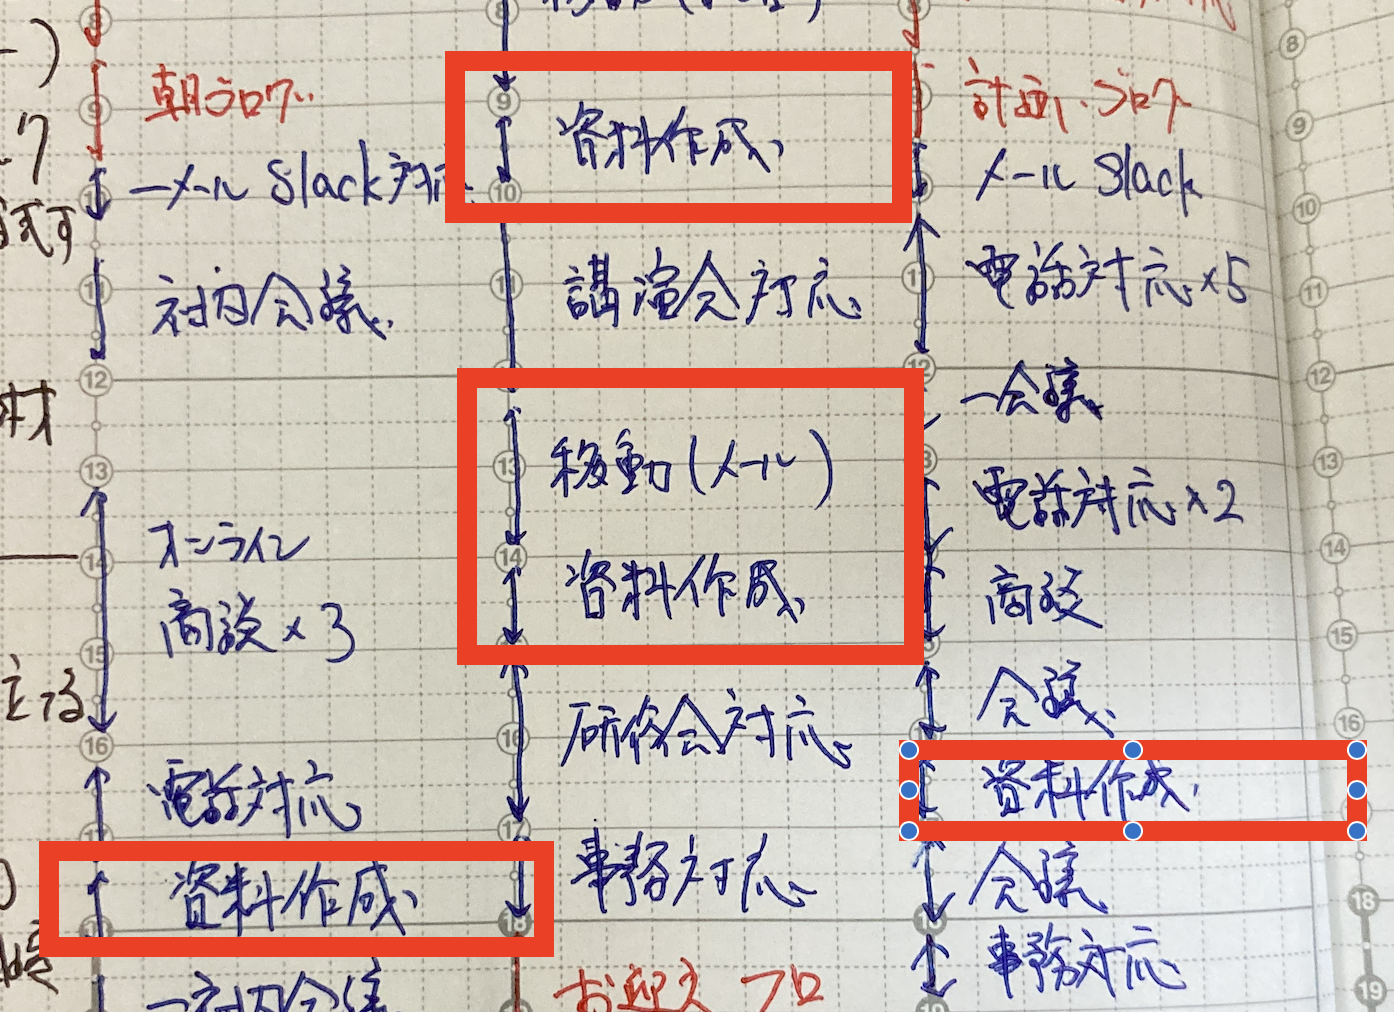 朝フロク
メール Slack対応
社内会議
12
13
オンライン
14
商談×3
15
16
電話対応
資料作成
社内会議
9
資料作成
10
講演会対応
11
13
移動(メール)
14
資料作成
研修会対応
16
17
事務対応
18
お迎え フロ
計画、ブログ
メール Slack
11
電話対応×5
12
会議
電話対応×2
商談
会議
資料作成
会議
事務対応
8
9
10
11
12
13
14
15
16
18
19